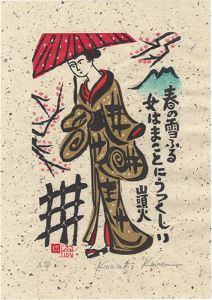 春の雪ふる
女はまことにうつくしい
山頭火
Kozaki Kan